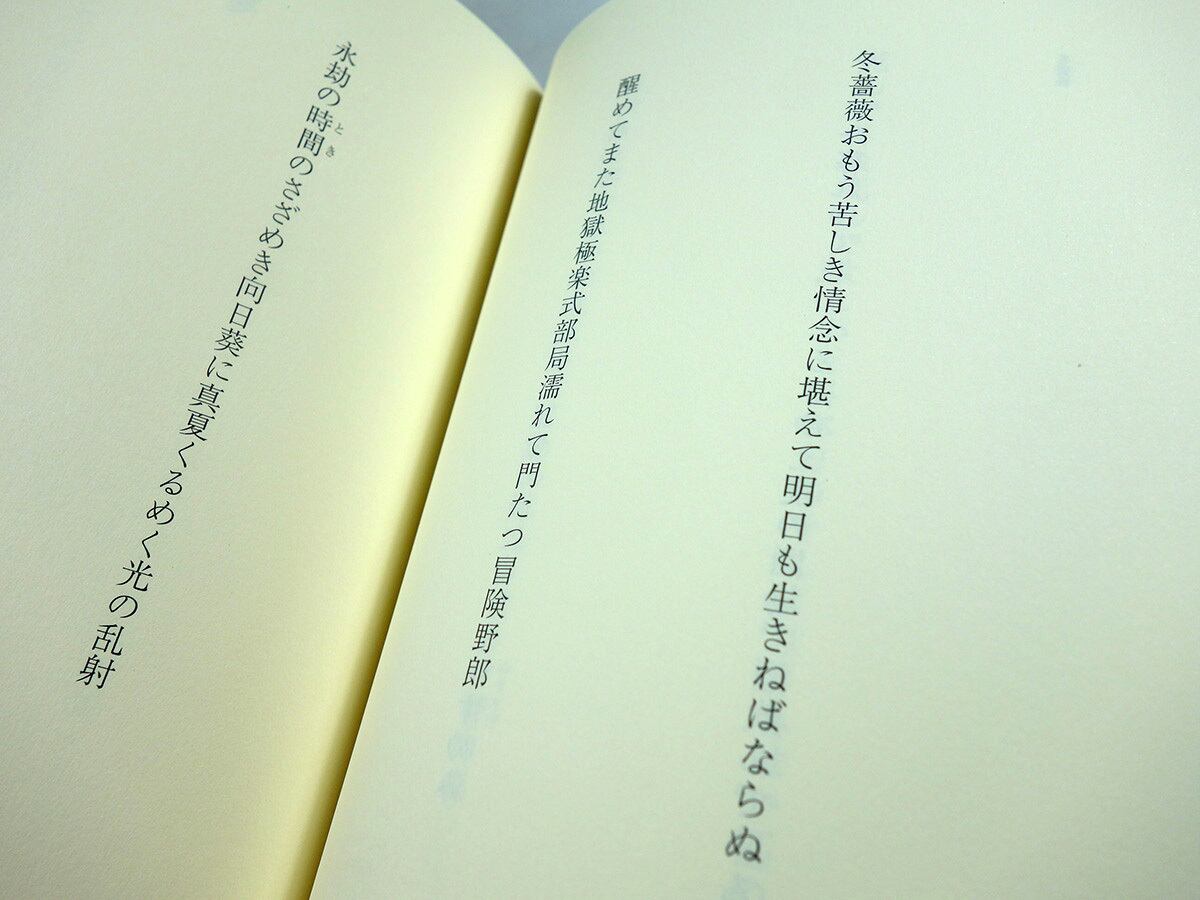 冬薔薇おもう苦しき情念に堪えて明日も生きねばならぬ
醒めてまた地獄極楽式部局濡れて門たつ冒険野郎
永劫の時間のさざめき向日葵に真夏くるめく光の乱射
とき